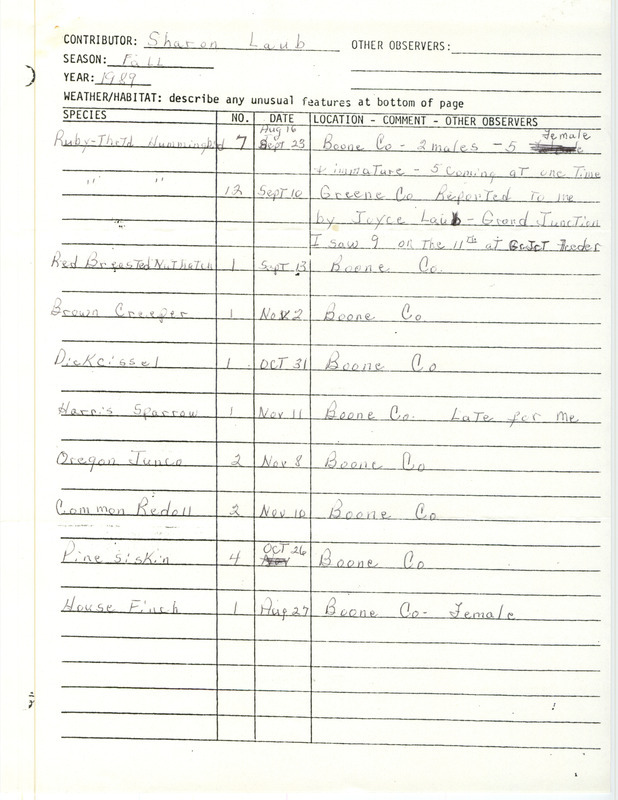 CONTRIBUTOR: Sharon Laub OTHER OBSERVERS:
SEASON: Fall
YEAR: 1989
WEATHER/HABITAT: describe any unusual features at bottom of page
SPECIES NO. DATE LOCATION - COMMENT - OTHER OBSERVERS
Aug 16 Female
Ruby-Thrtd Hummingbird 7 Sept 23 Boone Co - 2 males - 5
+ immature - 5 coming at one time
" " 12 Sept 10 Greene Co Reported to me
by Joyce Laub - Grand Junction
I saw 9 on the 11th at Gr Jct feeder
Red Breasted Nuthatch 1 Sept 13 Boone Co.
Brown Creeper 1 Nov 2 Boone Co
Dickcissel 1 OCT 31 Boone Co
Harris Sparrow 1 Nov 11 Boone Co. Late for me
Oregon Junco 2 Nov 8 Boone Co
Common Redoll 2 Nov 10 Boone Co
OCT 26
Pine Siskin 4 Boone Co
House Finch 1 Aug 27 Boone Co - Female